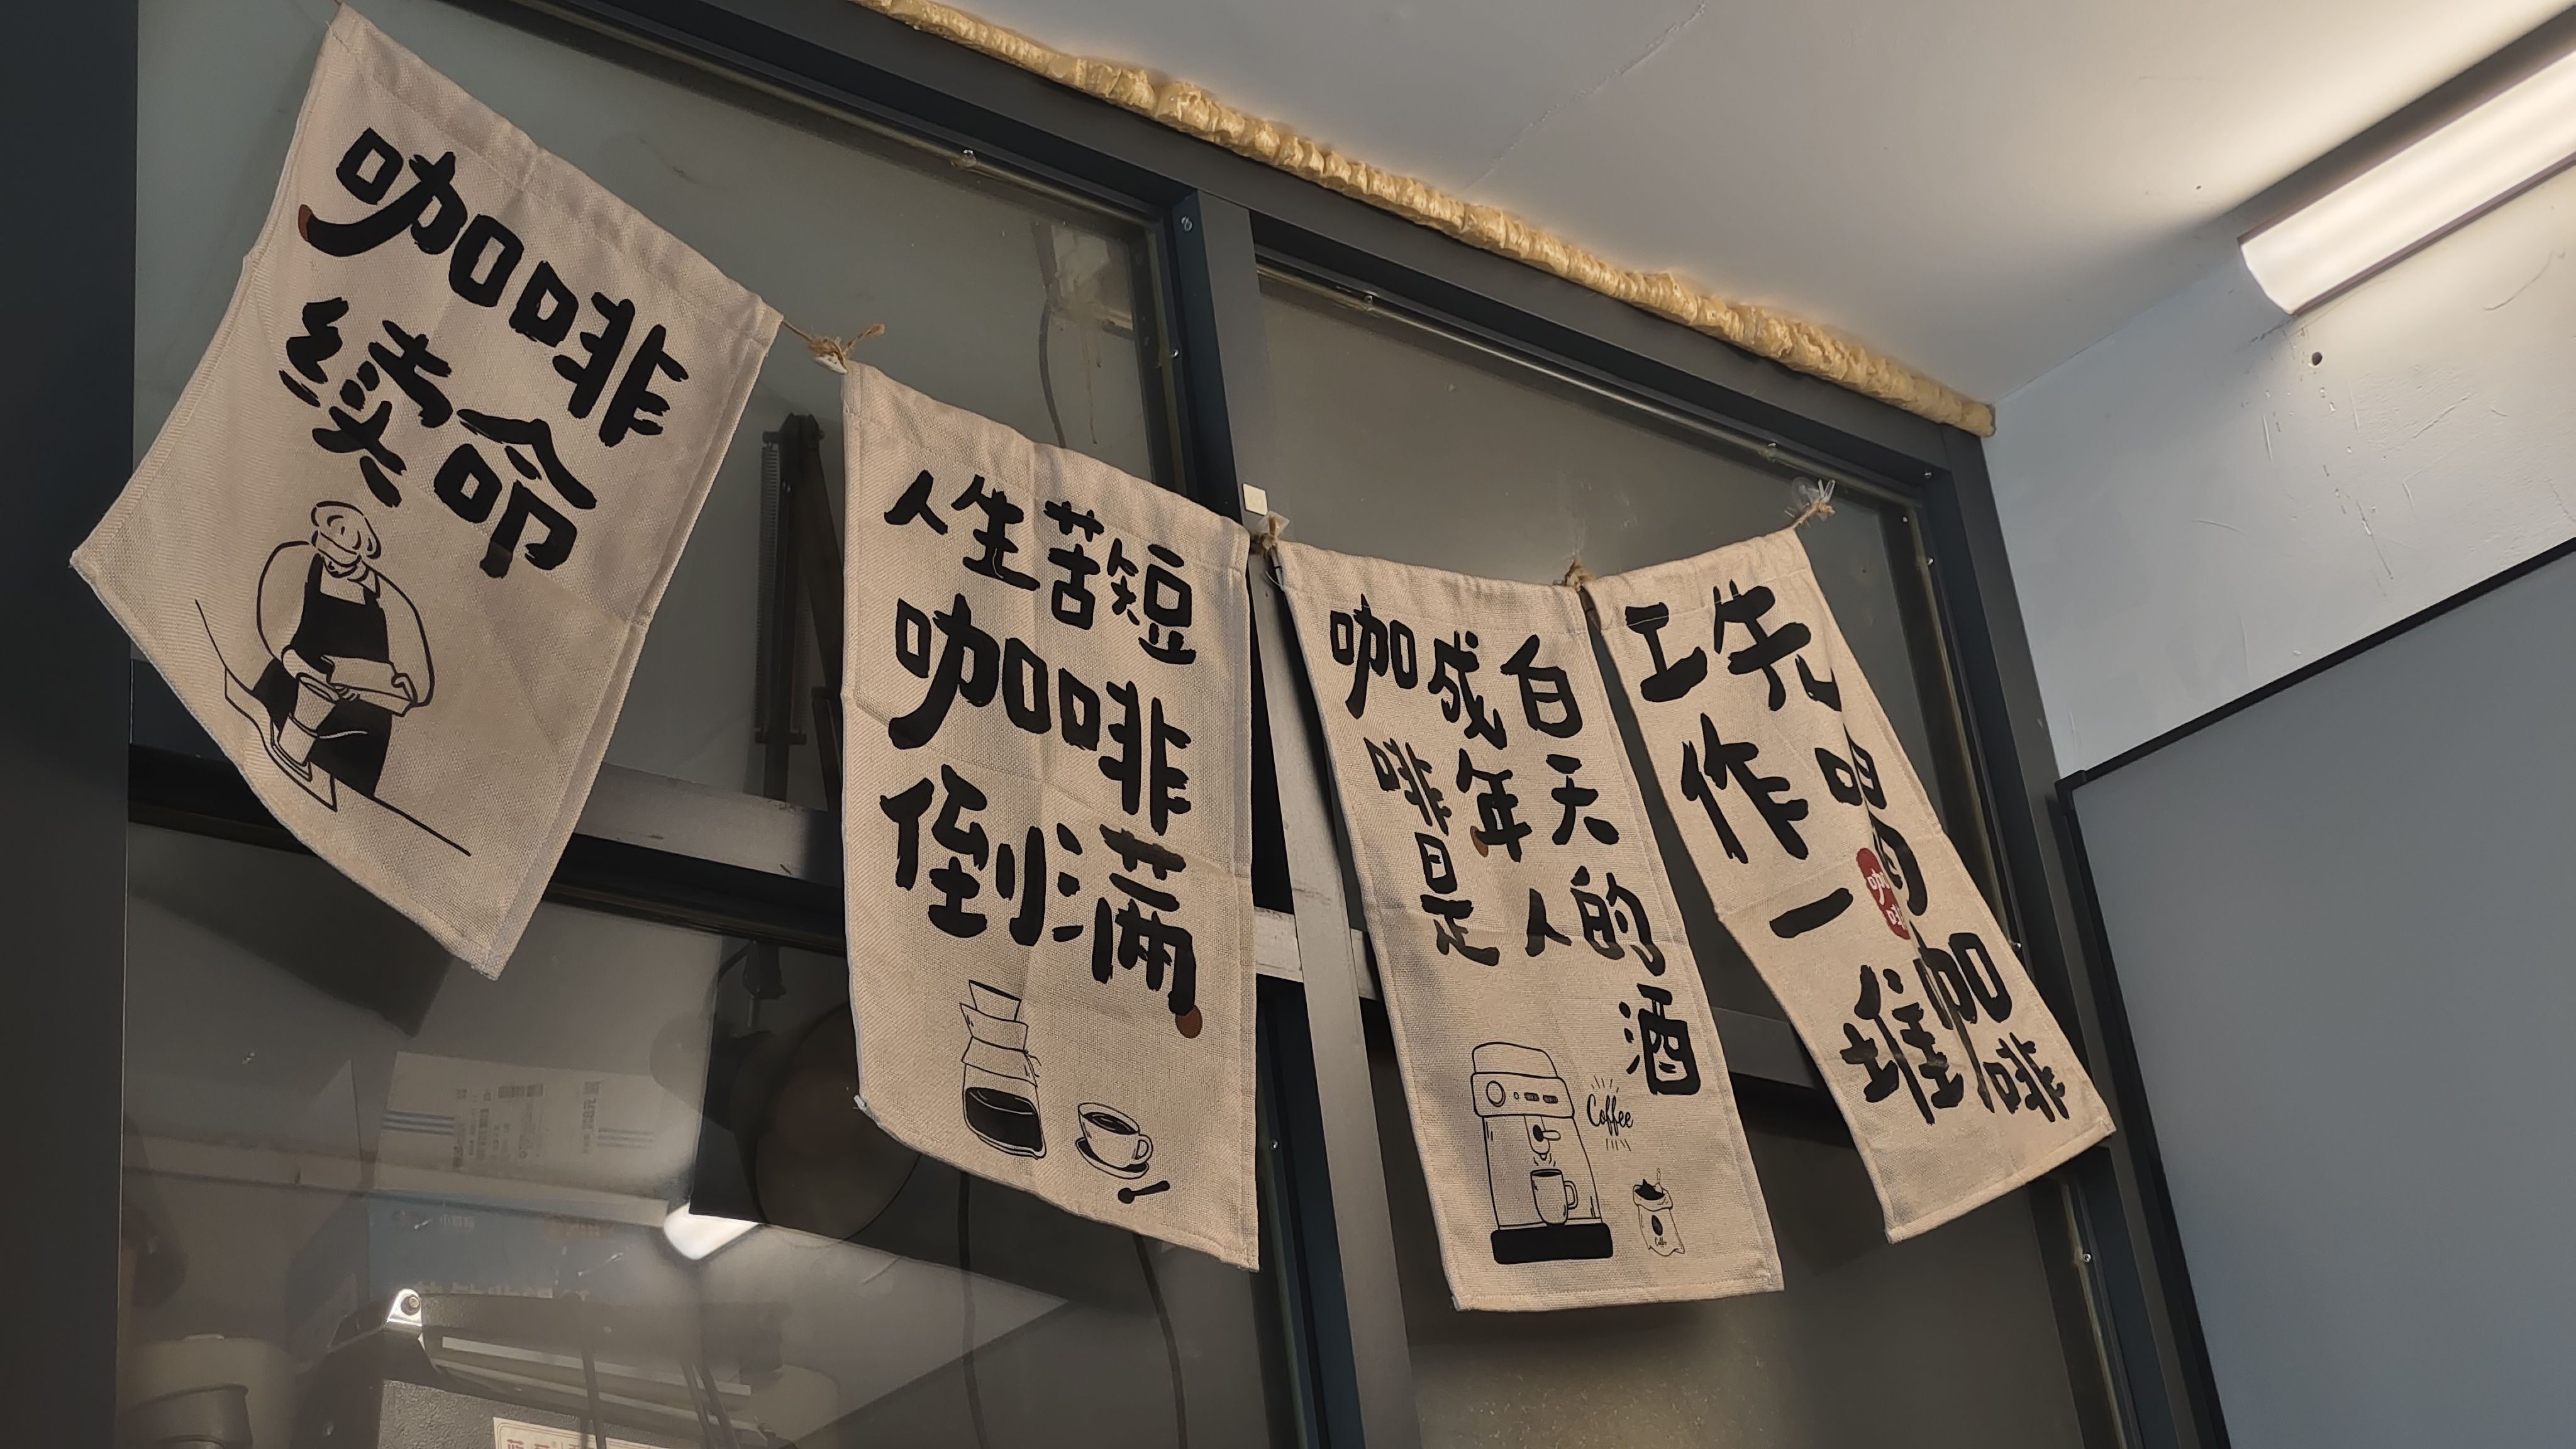 咖啡
续命
人生苦短
咖啡
倒满
咖啡是
成年人
白天的酒
Coffee
先喝咖啡
工作一堆
咖啡